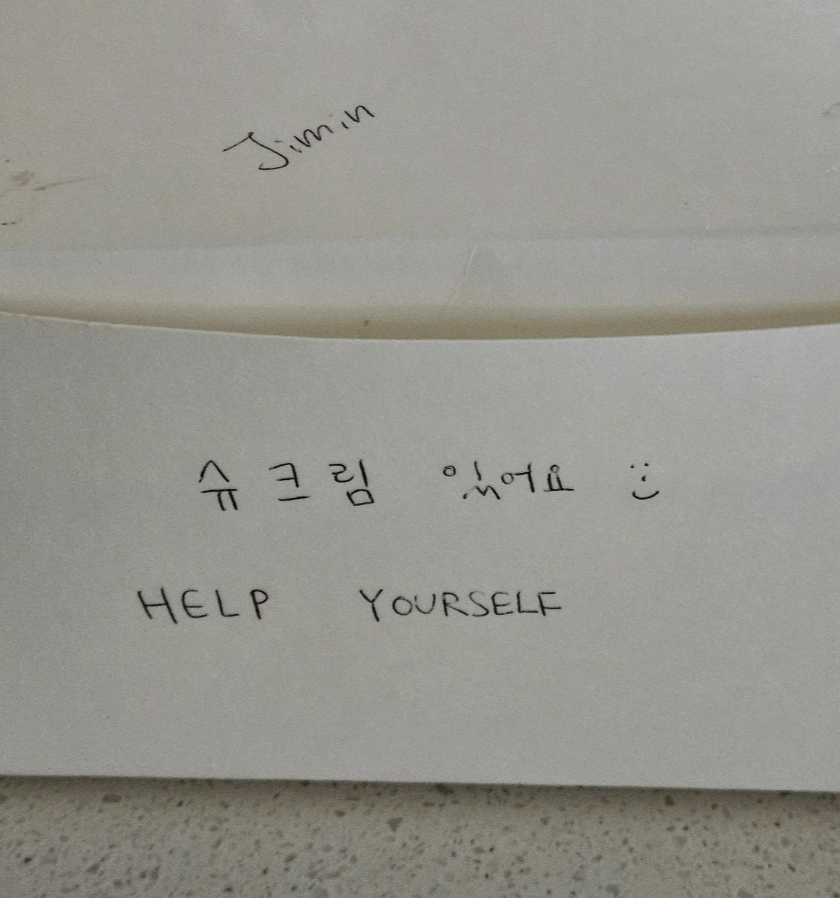 Jimin
슈크림 있어요 :)
HELP YOURSELF